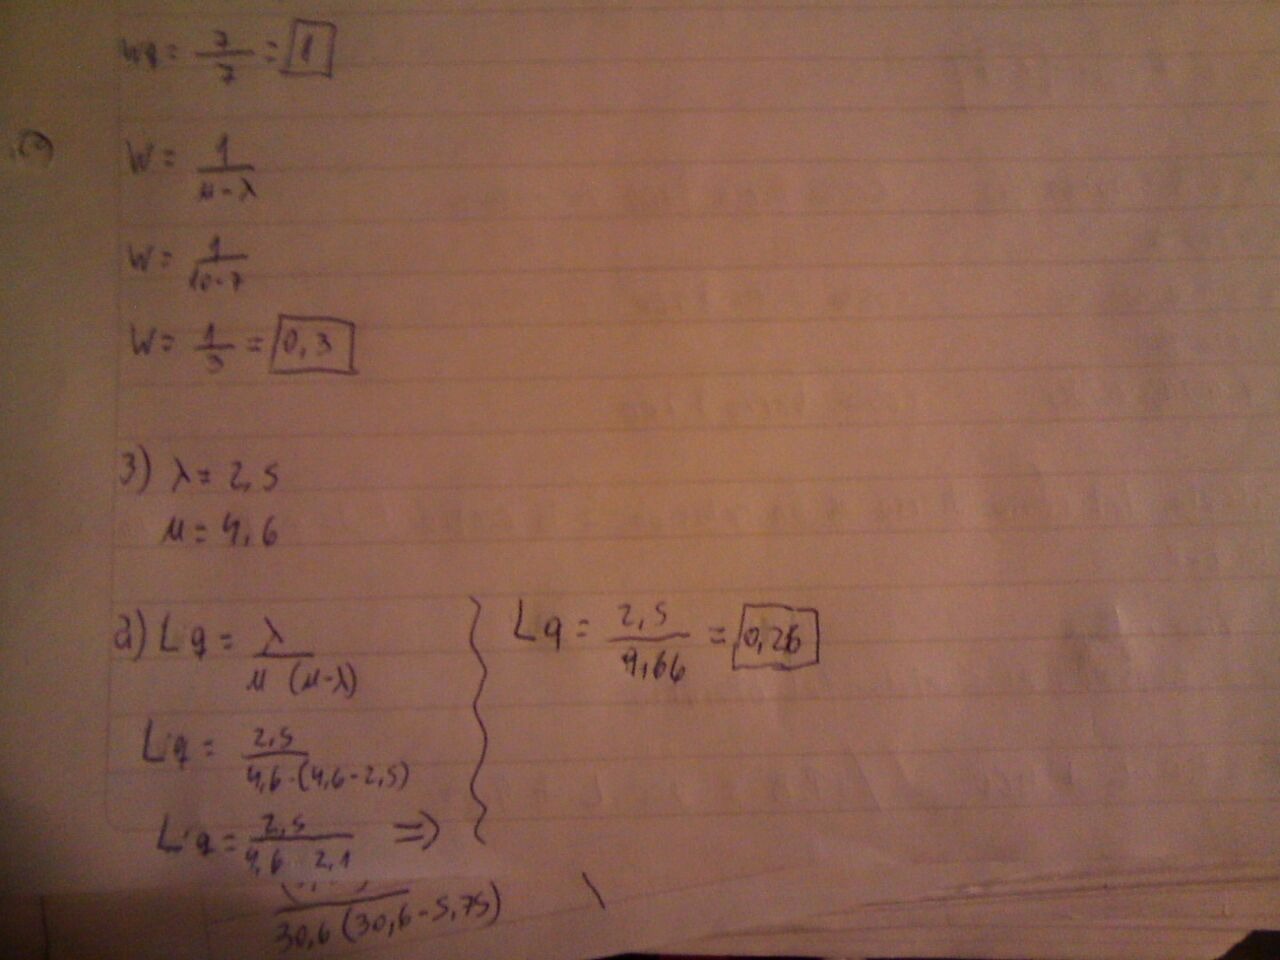 Wq = 7/7 = 1
W = 1/(μ-λ)
W = 1/(10-7)
W = 1/3 = 0,3
3) λ = 2,5
μ = 4,6
a) Lq = λ/(μ (μ-λ))
Lq = 2,5/(4,6-(4,6-2,5))
Lq = 2,5/(4,6 2,1) =>
Lq = 2,5/9,66 = 0,26
30,6 (30,6-5,75)